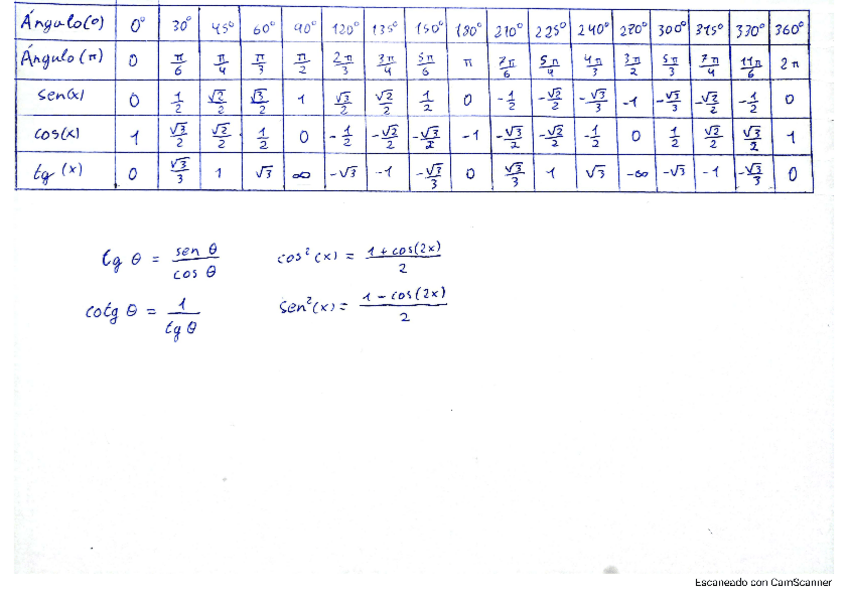 Ángulo(º) 0º 30º 45º 60º 90º 120º 135º 150º 180º 210º 225º 240º 270º 300º 315º 330º 360º
Ángulo(π) 0 π/6 π/4 π/3 π/2 2π/3 3π/4 5π/6 π 7π/6 5π/4 4π/3 3π/2 5π/3 7π/4 11π/6 2π
sen(x) 0 1/2 √2/2 √3/2 1 √3/2 √2/2 1/2 0 -1/2 -√2/2 -√3/3 -1 -√3/3 -√2/2 -1/2 0
cos(x) 1 √3/2 √2/2 1/2 0 -1/2 -√2/2 -√3/2 -1 -√3/2 -√2/2 -1/2 0 1/2 √2/2 √3/2 1
tg(x) 0 √3/3 1 √3 ∞ -√3 -1 -√3/3 0 √3/3 1 √3 -∞ -√3 -1 -√3/3 0
tg θ = sen θ/cos θ cos²(x) = 1+cos(2x)/2
cotg θ = 1/tg θ sen²(x) = 1-cos(2x)/2
Escaneado con CamScanner